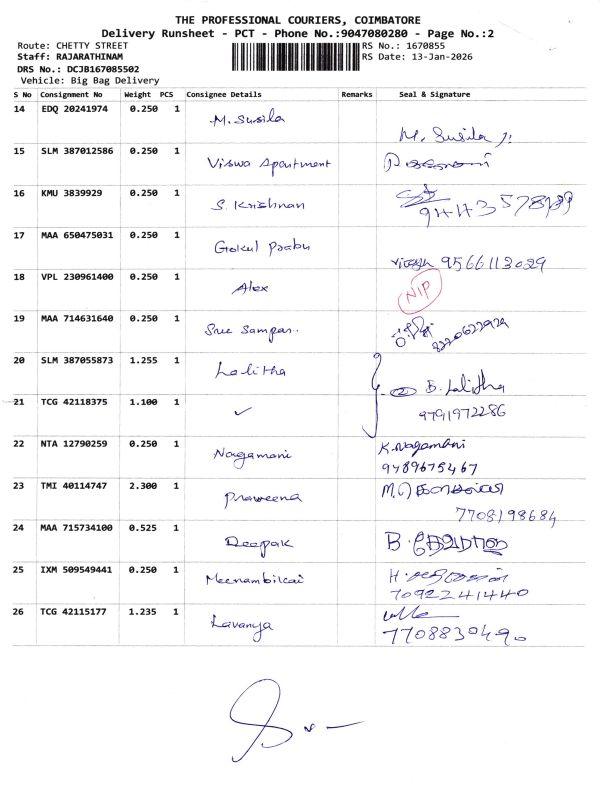 THE PROFESSIONAL COURIERS, COIMBATORE
Delivery Runsheet - PCT - Phone No.:9047080280 - Page No.:2
Route: CHETTY STREET RS No.: 1670855
Staff: RAJARATHINAM RS Date: 13-Jan-2026
DRS No.: DCJB167085502
Vehicle: Big Bag Delivery
S No Consignment No Weight PCS Consignee Details Remarks Seal & Signature
14 EDQ 20241974 0.250 1 M. Susila M. Susila
15 SLM 387012586 0.250 1 Viswa Apartment
16 KMU 3839929 0.250 1 S. Krishnan
17 MAA 650475031 0.250 1 Gokul Prabu 9566113029
18 VPL 230961400 0.250 1 Alex NIP
19 MAA 714631640 0.250 1 Sree Sampan..
20 SLM 387055873 1.255 1 Lalitha B. Lalitha
21 TCG 42118375 1.100 1 ✓ 9791972286
22 NTA 12790259 0.250 1 Nagamani K. Nagamani
9489675467
23 TMI 40114747 2.300 1 Praveena
7708198684
24 MAA 715734100 0.525 1 Deepak
25 IXM 509549441 0.250 1 Meenambikai
7092241440
26 TCG 42115177 1.235 1 Lavanya
7708830490